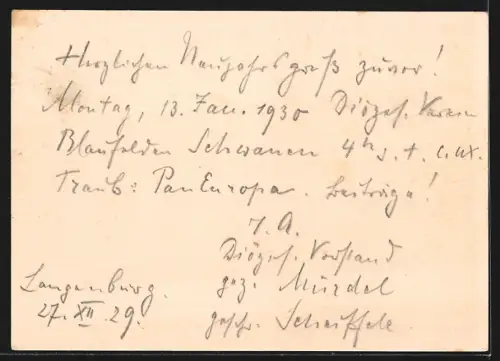 Herzlichen Neujahrsgruß zuvor!
Montag, 13. Jan. 1930 Diözes. Verein
Blaufelden Schwanen 4 h s. t. c. ux.
Traub: PanEuropa. Beiträge!
I. A.
Diözes. Vorstand
Langenburg. gez. Mürdel
27. XII. 29. geschr. Scheiffele.